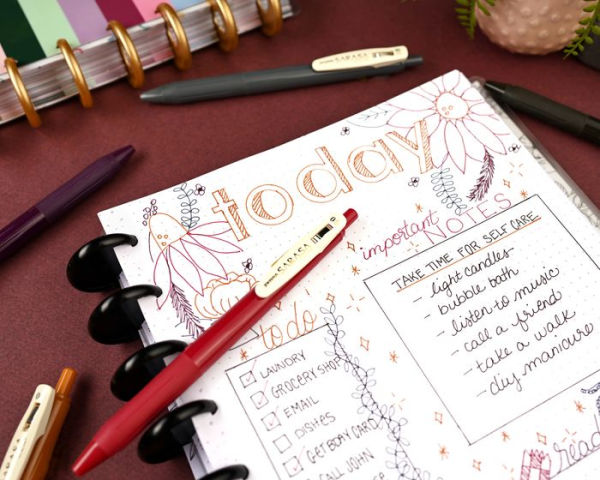 today
important
NOTES
TAKE TIME FOR SELF CARE
- light candles
- bubble bath
- listen to music
- call a friend
- take a walk
- diy manicure
to do
LAUNDRY
GROCERY SHOP
EMAIL
DISHES
GET BDAY CARD
CALL JOHN
read
SARASA
SARASA
SARASA